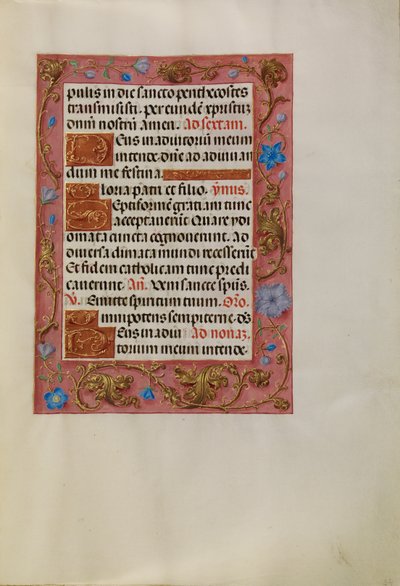 pulis in die sancto penthecostes
transmisisti. per eundē xp̄ustuz
dnm̄ nostrū Amen. Ad sextam.
Deus in adiutorium meum
intende. dn̄e ad adiuuan
dum me festina.
Gloria patri et filio. ymnus.
Septiformē gratiam tunc
acceptauerūt Quare ydi
omata cuncta cognouerunt. Ad
diuersa climata mundi recesserūt
Et fidem catholicam tunc predi
cauerunt An̄. Veni sancte sp̄us.
V̄. Emitte spiritum tuum. Oro.
Omnipotens sempiterne. ds̄
Deus in adiu Ad nonaz.
torium meum intende.